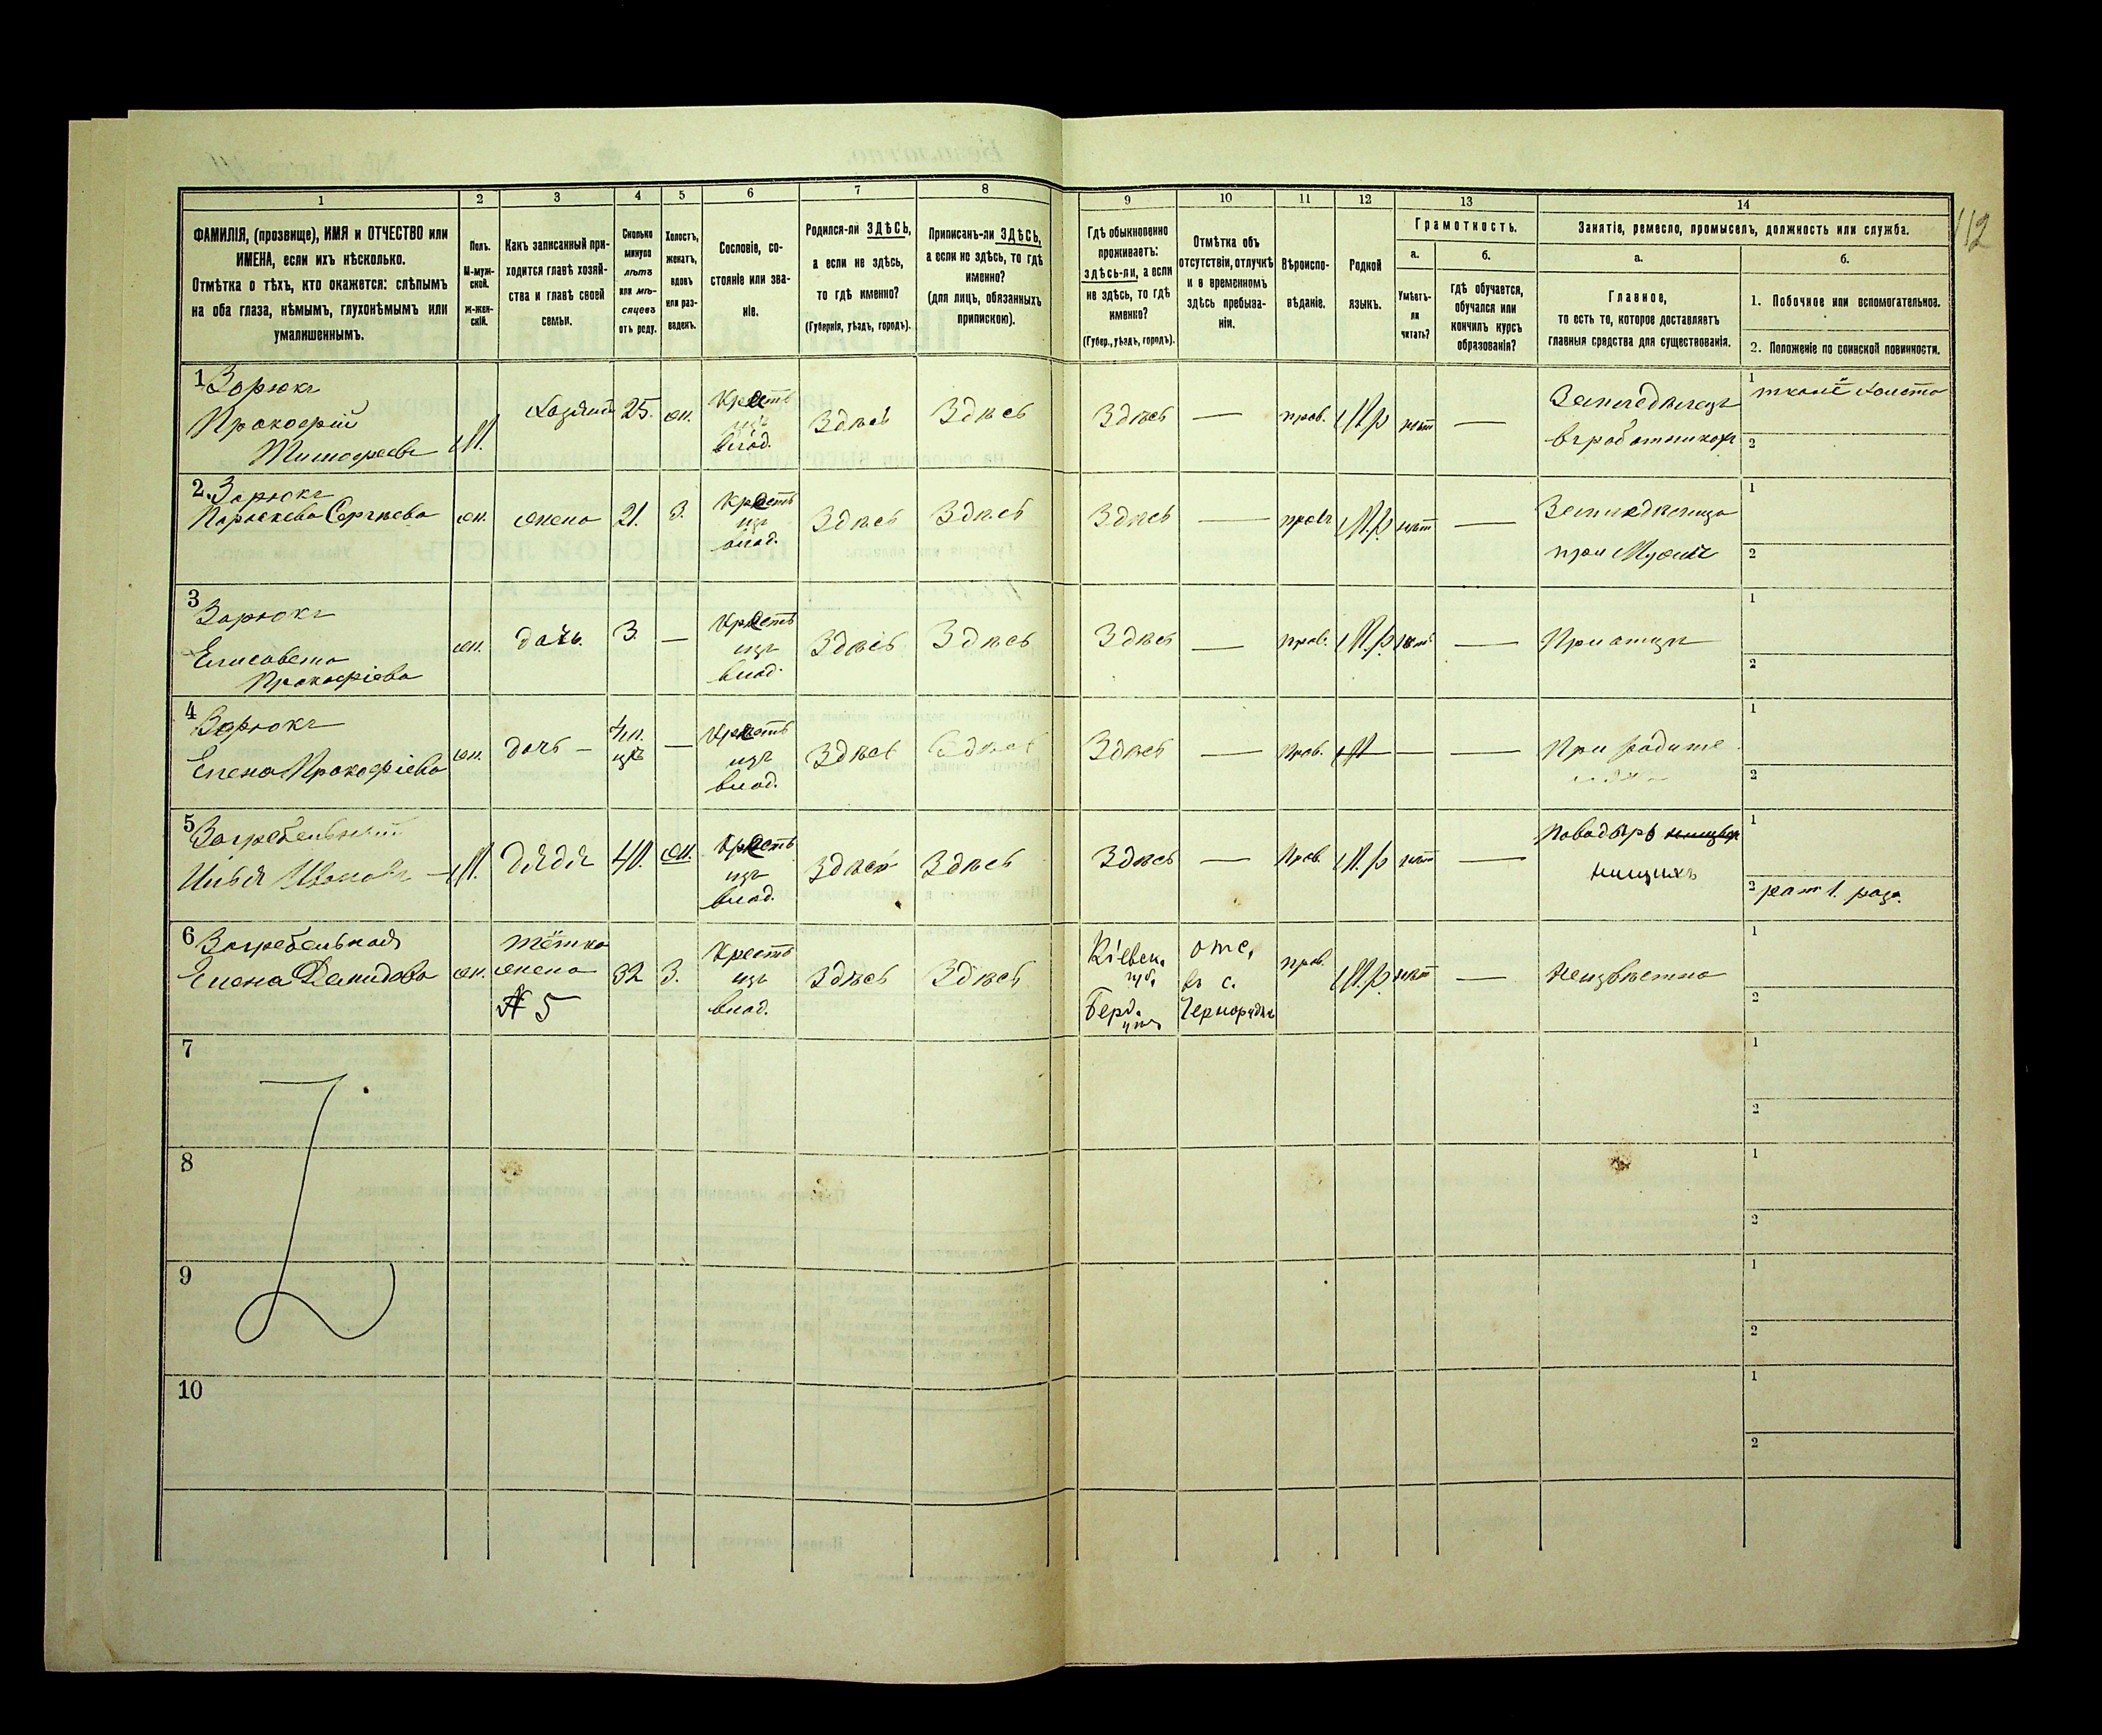 112
1
2
3
4
5
6
7
8
9
10
11
12
13
14
ФАМИЛІЯ, (прозвище), ИМЯ и ОТЧЕСТВО или
ИМЕНА, если ихъ нѣсколько.
Отмѣтка о тѣхъ, кто окажется: слѣпымъ
на оба глаза, нѣмымъ, глухонѣмымъ или
умалишеннымъ.
Полъ.
М-муж-
ской.
ж-жен-
скій.
Какъ записанный при-
ходится главѣ хозяй-
ства и главѣ своей
семьи.
Сколько
минуло
лѣтъ
или мѣ-
сяцевъ
отъ роду.
Холостъ,
женатъ,
вдовъ
или раз-
веденъ.
Сословіе, со-
стояніе или зва-
ніе.
Родился-ли ЗДѢСЬ,
а если не здѣсь,
то гдѣ именно?
(Губернія, уѣздъ, городъ).
Приписанъ-ли ЗДѢСЬ,
а если не здѣсь, то гдѣ
именно?
(для лицъ, обязанныхъ
припискою).
Гдѣ обыкновенно
проживаетъ:
здѣсь-ли, а если
не здѣсь, то гдѣ
именно?
(Губер., уѣздъ, городъ).
Отмѣтка объ
отсутствіи, отлучкѣ
и в временномъ
здѣсь пребыва-
ніи.
Вѣроиспо-
вѣданіе.
Родной
языкъ.
Грамотность.
а.
Умѣетъ-
ли
читать?
б.
Гдѣ обучается,
обучался или
кончилъ курсъ
образованія?
Занятіе, ремесло, промыселъ, должность или служба.
а.
Главное,
то есть то, которое доставляетъ
главныя средства для существованія.
б.
1. Побочное или вспомогательное.
2. Положеніе по воинской повинности.
1 Зарюкъ
Прокофій
Тимофеевъ
М.
Хозяинъ
25.
жн.
Крестъ
изъ
влад.
Здѣсь
Здѣсь
Здѣсь
—
прав.
М.р
нѣт
—
Земледѣлецъ
въ работникахъ
1
2
2. Зарюкъ
Параскева Сергѣева
жн.
жена
21.
З.
Крестъ
изъ
влад.
Здѣсь
Здѣсь
Здѣсь
—
прав
М.р
нѣт
—
Земледѣлица
при Мужѣ
1
2
3
Зарюкъ
Елисавета
Прокофіева
жн.
дочь.
3.
—
Крестъ
изъ
влад.
Здѣсь
Здѣсь
Здѣсь
—
прав.
М.р
нѣт
—
При отцѣ
1
2
4
Зарюкъ
Елена Прокофіева
жн.
дочь —
—
Крестъ
изъ
влад.
Здѣсь
Здѣсь
Здѣсь
—
Прав.
М
—
—
При родите
1
2
5
Илья Ивановъ
М.
дядя
40.
жн.
Крестъ
изъ
влад.
Здѣсь
Здѣсь
Здѣсь
—
Прав.
М.р
нѣт
—
Поводырь
нищихъ
1
2 рат 1. разр.
6 Загребельная
Елена Демидова
жн.
тётка
жена
№ 5
32
З.
Крестъ
изъ
влад.
Здѣсь
Здѣсь
Кіевск.
губ.
Берд.
отс.
въ с.
прав.
М.р.
нѣт
—
Неизвѣстно
1
2
7
1
2
8
1
2
9
1
2
10
1
2